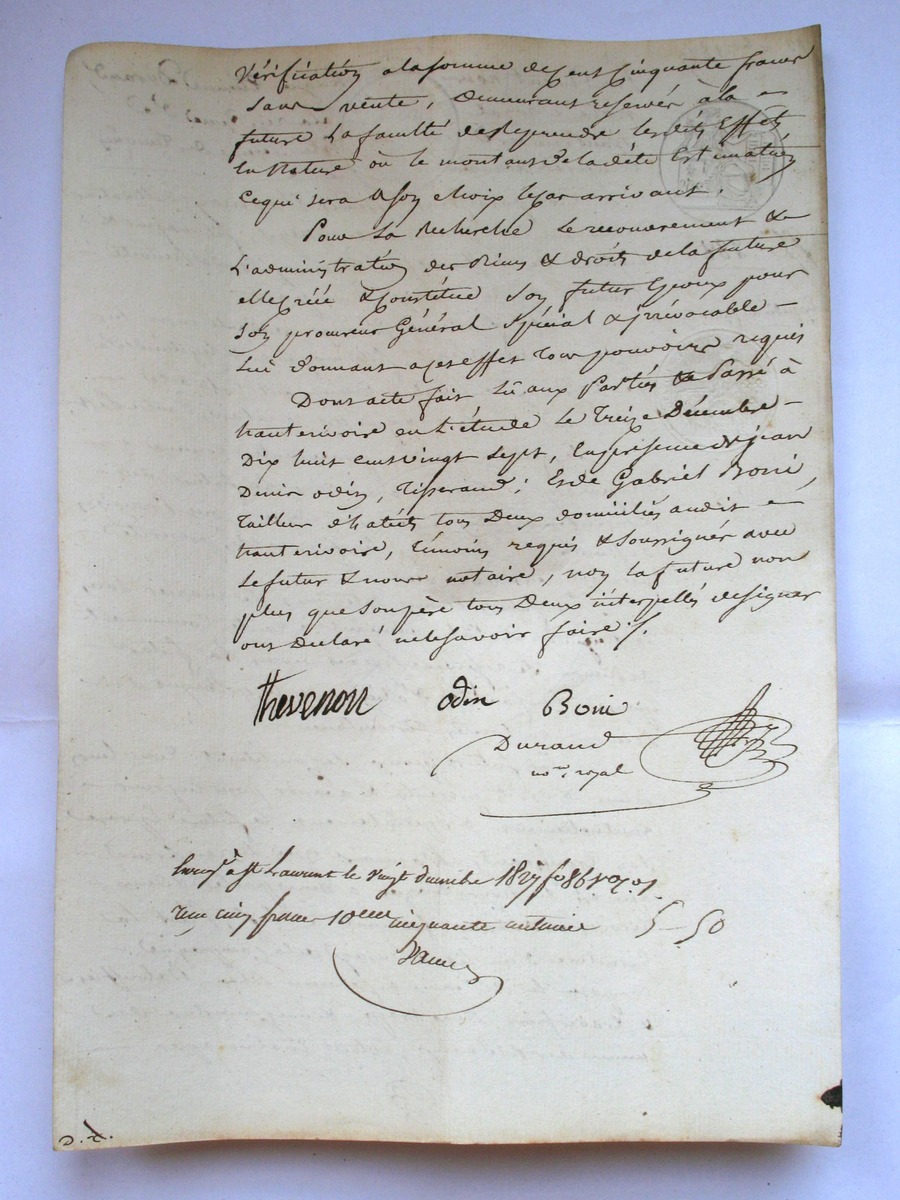 Vérification a la somme de Cent Cinquante francs
sans vente, demeurant reservée à la
future La faculté de Reprendre lesdits Effets
En Nature ou le montant de ladite Estimation
Ce qui sera a Son choix le cas arrivant.
Pour La Recherche Le recouvrement &
L'administration des Biens & droits de la future
elle Créé & Constitue Son futur Epoux pour
Son procureur Général Spécial & irrévocable
Lui donnant a cet effet tous pouvoirs requis
Dont acte fait Lû aux Parties & Passé à
hauterivoire en L'étude Le Treize Décembre
Dix huit cent vingt Sept, En présence de jean
Denis odin, Tisserand; Et de Gabriel Boni,
Tailleur d'habits tous Deux domiciliés audit
hauterivoire, témoins requis & Soussignés avec
Le futur & nous notaire, non La future non
plus que Son père tous Deux interpellés de signer
ont Déclaré ne le savoir faire ./.
thevenon odin Boni
Durand
no.re royal
Enreg.é a St Laurent le vingt decembre 1827 fo 86
reçu cinq francs 10eme cinquante centimes 5-50